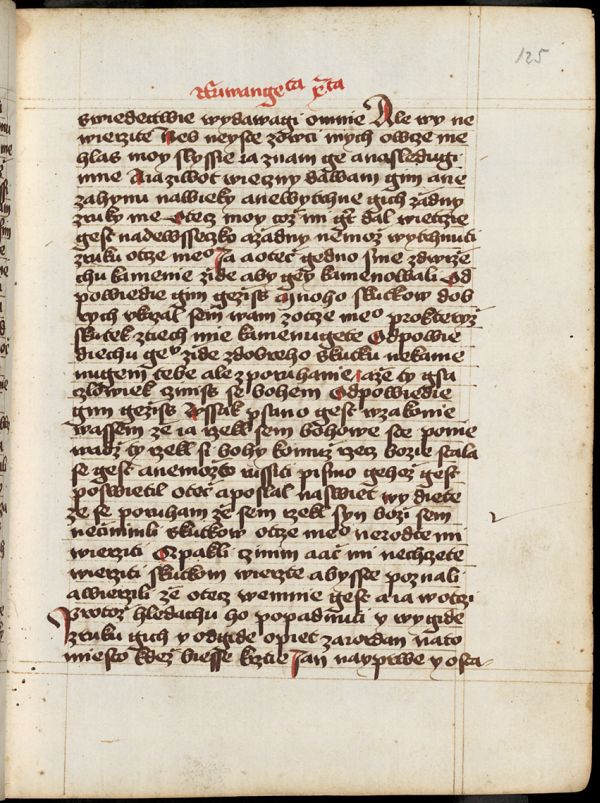 125
swiedectwie wydawagi omnie Ale wy ne
wierzite Neb neyste zowci mych owcze me
hlas moy slyssie ia znam ge anasledugi
mne Aiaziwot wieczny dawam gim ane
zahynu nawieky anewytrhne gich zadny
zruky me Otecz moy coz mi gt dal wietczie
gest nadewsseczko azadny nemoz wytrhnuti
zruku otcze meo Ja aotec gedno sme zdwize
chu kamenie zide aby gey kamenowali Od
powiedie gim gezis Mnoho skutkow dob
rych vkazal sem wam zotcze meo prokteryz
skutek ztiech mie kamenugete Odpowie
diechu gev zide zdobreho skutku nekame
nugem tebe ale zporuhanie aze ty gsa
czlowiek czinis se bohem Odpowiedie
gim gezis Wssak psano gest wzakonie
wassem ze ia rzekl sem bohowe ste ponie
wadz ty rzekl si bohy komuz rzecz bozie stala
se gest anemozto russiti pismo gehoz gest
poswietil otec aposlal naswiet wy diete
ze se poruham ze sem rzekl syn bozi sem
necinimli skutkow otcze meo nerodte mi
wierziti Czpakli czinim aac mi nechczete
wierziti skutkom wierzte abysste poznali
awierzili ze otecz wemnie gest aia wotci
Protoz hledachu ho popadnuti y wygide
zruku gich y odgide opiet zaiordan nato
miesto kdez biesse krztie Jan nayprwe y osta